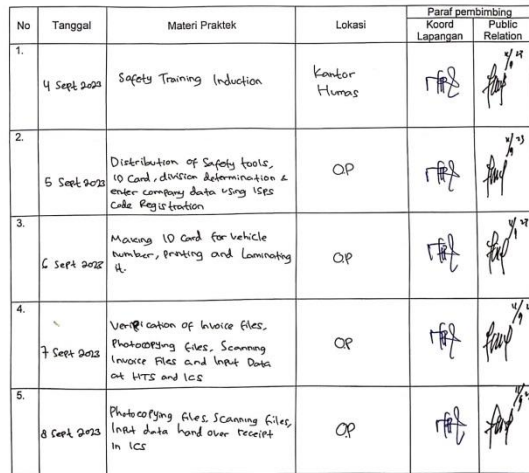 No Tanggal Materi Praktek Lokasi Paraf pembimbing
Koord Lapangan Public Relation
1.
4 Sept 2023 Safety Training Induction Kantor
Humas
2.
Distribution of Safety tools,
ID Card, division determination &
5 Sept 2023 enter company data using ISPS OP
Code Registration
3.
Making ID Card for vehicle
number, Printing and Laminating
6 Sept 2023 it. OP
4.
Verification of Invoice files,
Photocopying files, Scanning
7 Sept 2023 Invoice Files and Input Data OP
at HTS and ICS
5.
Photocopying files, Scanning files,
8 Sept 2023 Input data hand over receipt OP
in ICS